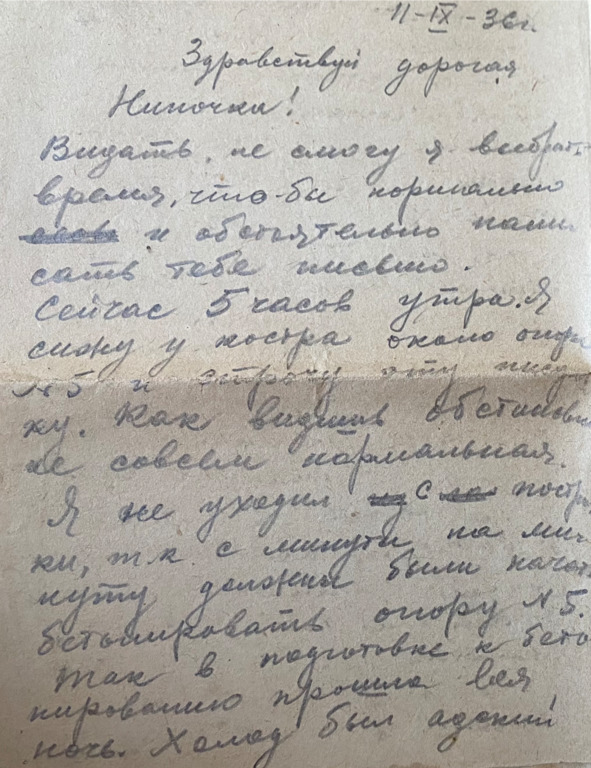 11-IX-36г.
Здравствуй дорогая
Ниночка!
Видать, не смогу я выбрать
время, что-бы нормально
и обстоятельно напи
сать тебе письмо.
Сейчас 5 часов утра. Я
сижу у костра около опоры
№5 и строчу эту писул
ку. Как видишь обстановка
не совсем нормальная.
Я не уходил с построй
ки, т.к с минуты на ми
нуту должны были начать
бетонировать опору №5.
Так в подготовке к бето
нированию прошла вся
ночь. Холод был адский